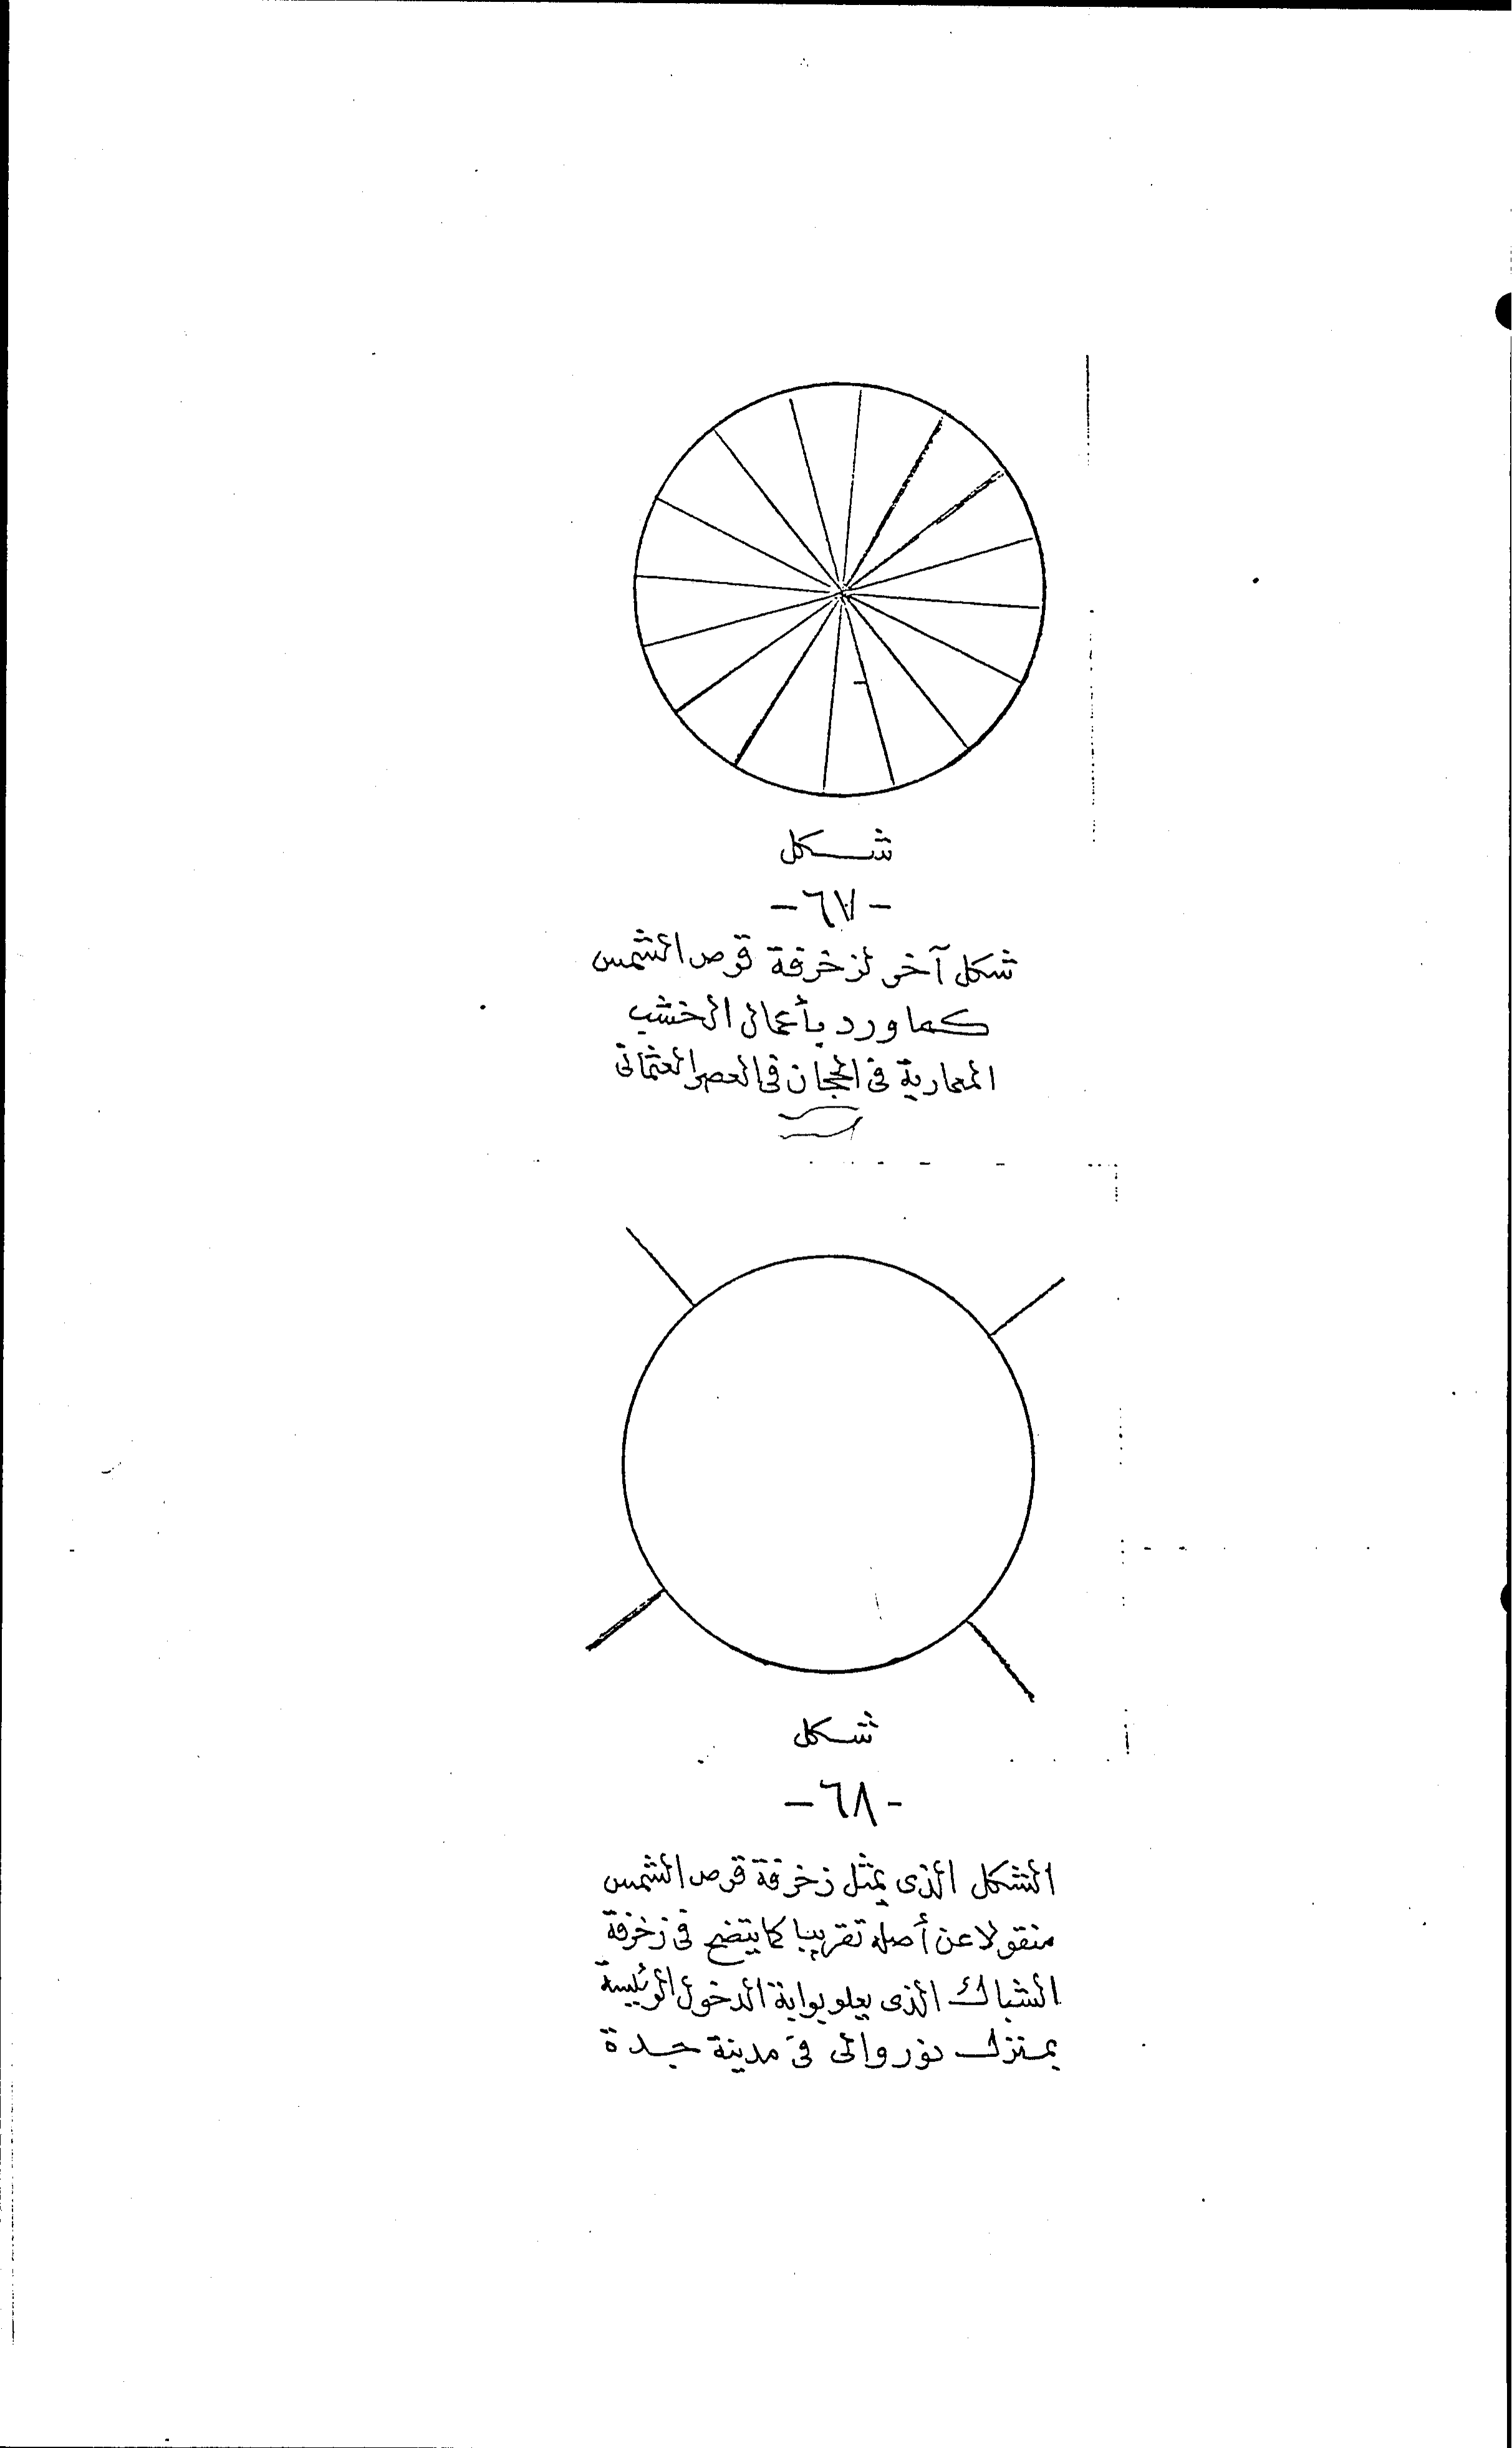 شكل
- ٦٧ -
شكل آخر لزخرفة قرص الشمس
كما ورد بأعمال الخشب
المعمارية في الحجاز في العصر العثماني
شكل
- ٦٨ -
الشكل الذى يمثل زخرفة قرص الشمس
منقولا عن أصله تقريبا كما يتضح في زخرفة
الشباك الذى يعلو بوابة الدخول الرئيسة
بمنزل نور والى في مدينة جدة